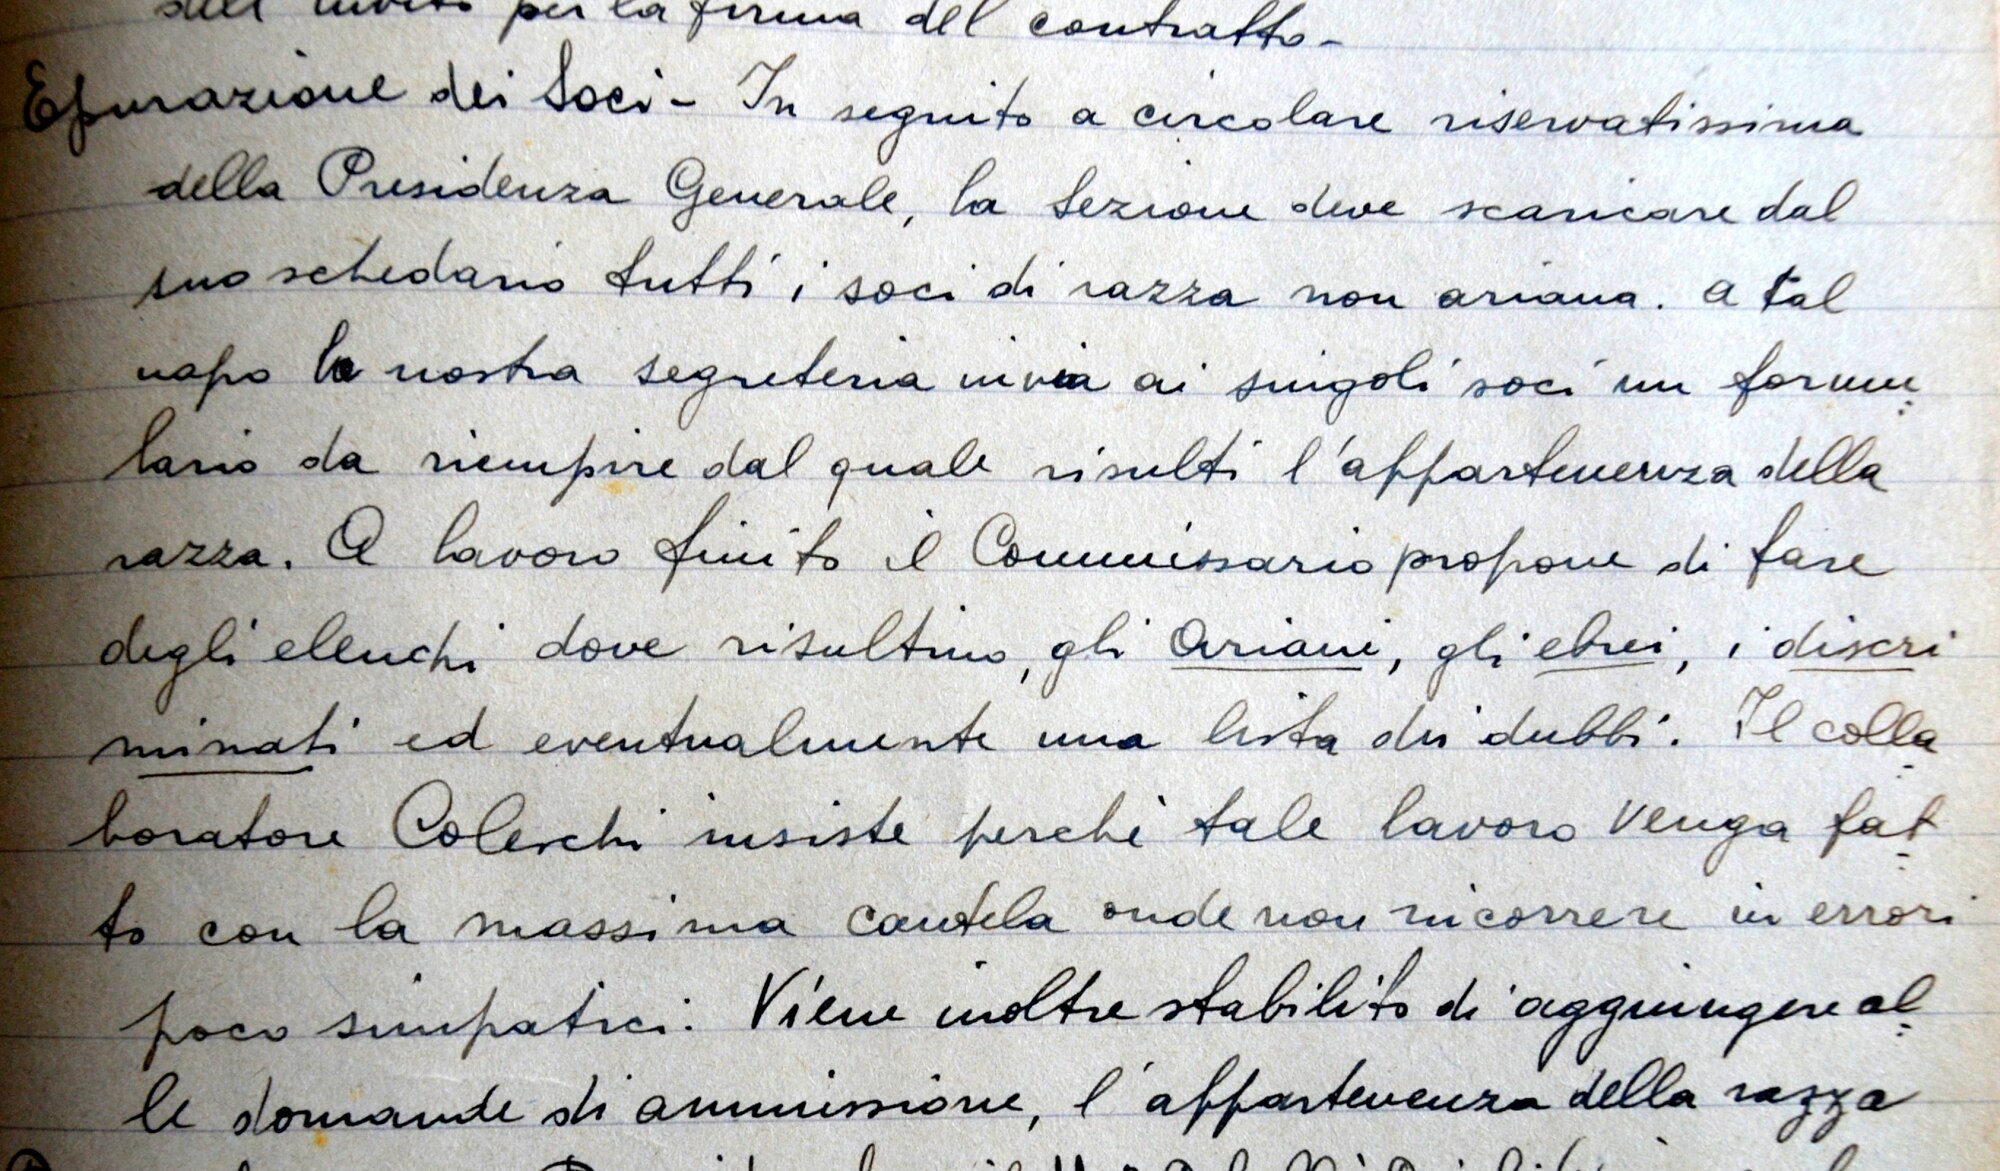 dell'invito per la firma del contratto -
Epurazione dei Soci - In seguito a circolare riservatissima
della Presidenza Generale, la Sezione deve scaricare dal
suo schedario tutti i soci di razza non ariana. a tal
uopo la nostra segreteria invia ai singoli soci un formu
lario da riempire dal quale risulti l'appartenenza della
razza. A lavoro finito il Commissario propone di fare
degli elenchi dove risultino, gli Ariani, gli ebrei, i discri
minati ed eventualmente una lista dei dubbi. Il colla
boratore Coleschi insiste perchè tale lavoro venga fat
to con la massima cautela onde non incorrere in errori
poco simpatici. Viene inoltre stabilito di aggiungere al
le domande di ammissione, l'appartenenza della razza